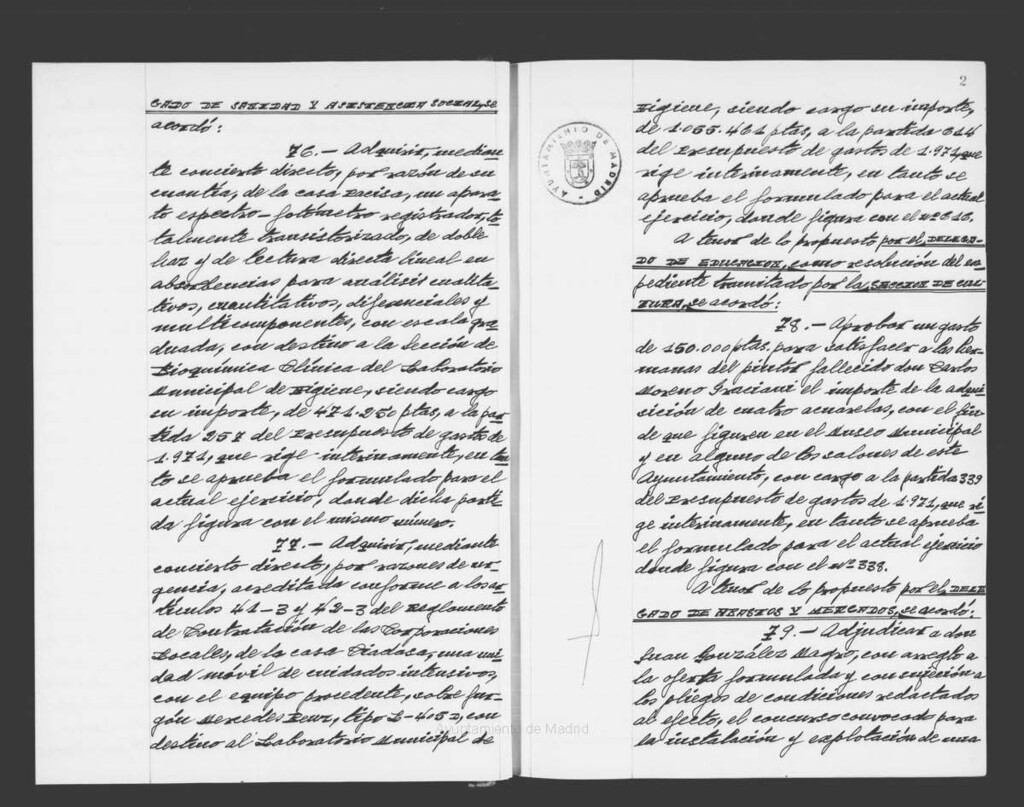 GADO DE SANIDAD Y ASISTENCIA SOCIAL, se
acordó:
76.- Adquirir, median
te concierto directo, por razón de su
cuantía, de la casa Dacisa, un apara
to espectro-fotómetro registrador, to
talmente transistorizado, de doble
haz y de lectura directa lineal en
absorbencias para análisis cualita
tivos, cuantitativos, diferenciales y
multicomponentes, con escala gra
duada, con destino a la Sección de
Bioquímica Clínica del Laboratorio
Municipal de Higiene, siendo cargo
su importe, de 471.250 ptas, a la par
tida 257 del Presupuesto de gastos de
1.971, que rige interinamente, en tan
to se aprueba el formulado para el
actual ejercicio, donde dicha parti
da figura con el mismo número.
77.- Adquirir, mediante
concierto directo, por razones de ur
gencia, acreditada conforme a los ar
tículos 41-3 y 42-3 del Reglamento
de Contratación de las Corporaciones
Locales, de la casa una uni
dad móvil de cuidados intensivos,
con el equipo procedente, sobre fur
gón Mercedes Benz, tipo L-405 D, con
destino al Laboratorio Municipal de
2
Higiene, siendo cargo su importe,
de 1.055.461 ptas, a la partida 614
del Presupuesto de gastos de 1.971, que
rige interinamente, en tanto se
aprueba el formulado para el actual
ejercicio, donde figura con el nº 616.
A tenor de lo propuesto por el DELEGA-
DO DE EDUCACION, como resolución del ex
pediente tramitado por la SECCION DE CUL
TURA, se acordó:
78.- Aprobar un gasto
de 150.000 ptas. para satisfacer a las her-
manas del pintor fallecido don Carlos
Moreno Graciani el importe de la adqui
sición de cuatro acuarelas, con el fin
de que figuren en el Museo Municipal
y en alguno de los salones de este
Ayuntamiento, con cargo a la partida 339
del Presupuesto de gastos de 1.971, que ri
ge interinamente, en tanto se aprueba
el formulado para el actual ejercicio
donde figura con el nº 338.
A tenor de lo propuesto por el DELE
GADO DE ABASTOS Y MERCADOS, se acordó:
79.- Adjudicar a don
Juan González Magro, con arreglo a
la oferta formulada y con sujeción a
los pliegos de condiciones redactados
al efecto, el concurso convocado para
la instalación y explotación de una
AYUNTAMIENTO DE MADRID
Ayuntamiento de Madrid